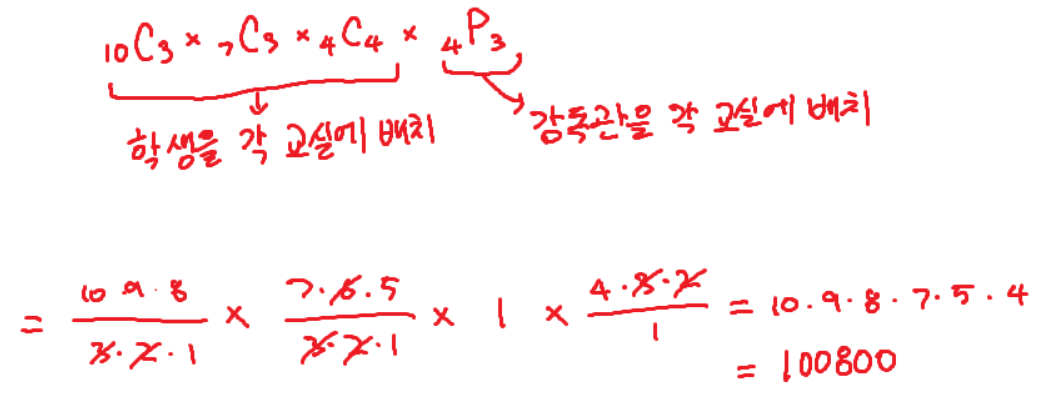 ₁₀C₃ × ₇C₃ × ₄C₄ × ₄P₃
학생을 각 교실에 배치
감독관을 각 교실에 배치
= 10·9·8/3·2·1 × 7·6·5/3·2·1 × 1 × 4·3·2/1 = 10·9·8·7·5·4
= 100800